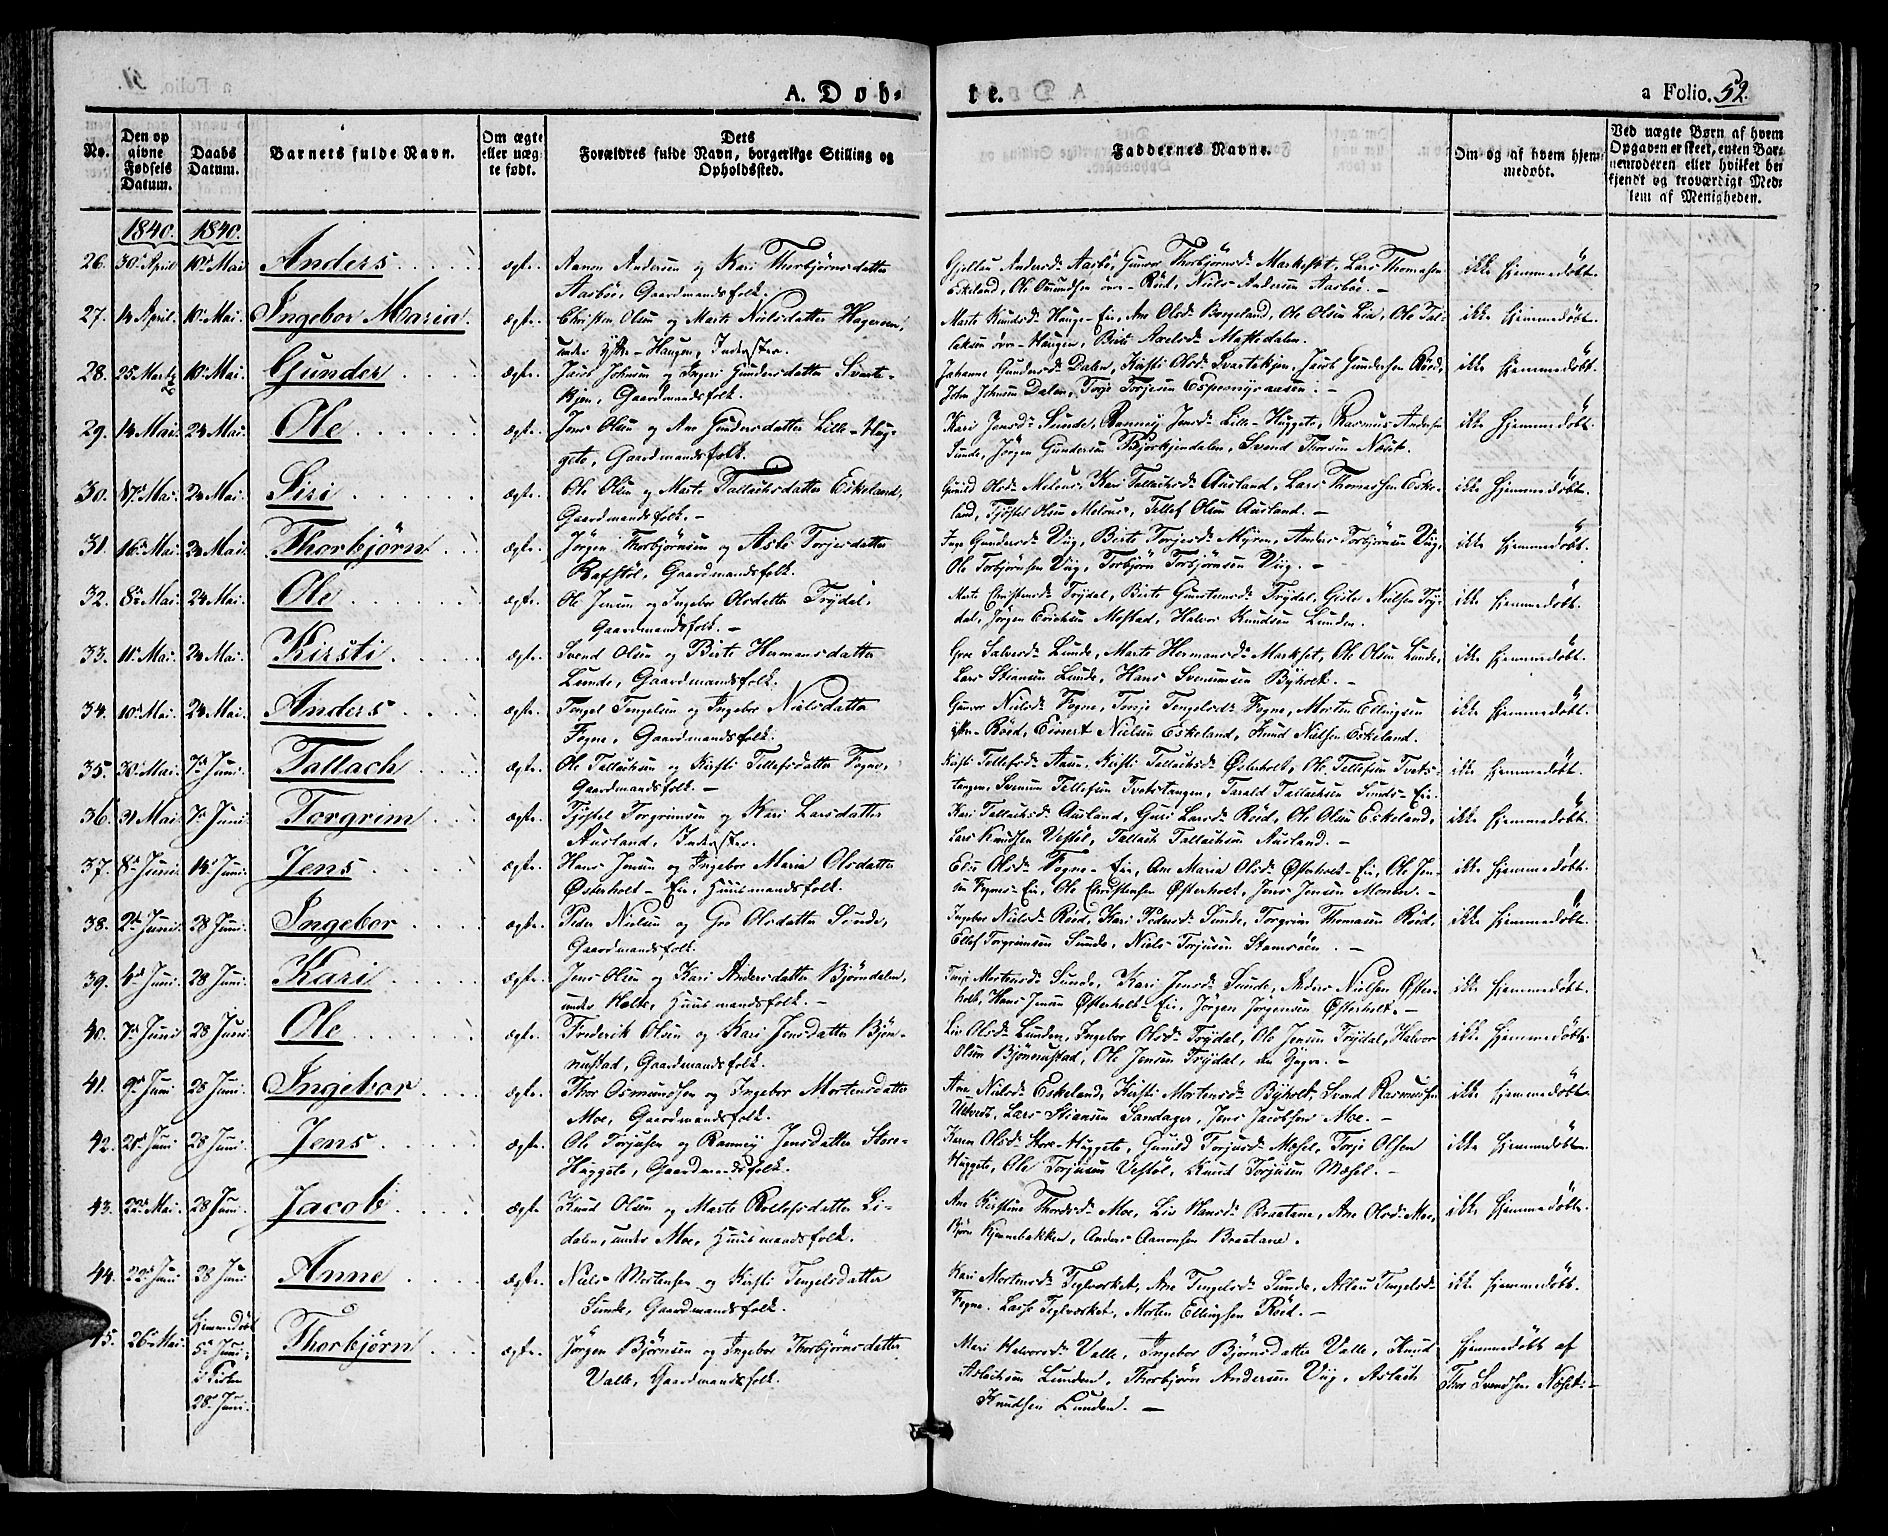 A. Döb-
te.
a Folio. 52.
No.
Den op
givne
Fødsels
Datum.
Daabs
Datum.
Barnets fulde Navn.
Om ægte
eller uæg
te født.
Dets
Forældres fulde Navn, borgerlige Stilling og
Opholdssted.
Faddernes Navne.
Om og af hvem hjem
medøbt.
Ved uægte Børn af hvem
Opgaven er skeet, enten Bar
nemoderen eller hvilket be
kjendt og troværdigt Med
lem af Menigheden.
1840. 1840.
26. 30 April 10 Mai Anders. ægte. Aanon Andersen og Kari Thorbjörnsdatter
Aasbö, Gaardmandsfolk.
Gjellau Andersd. Aasbö, Gunvor Thorbjörnsd. Markeset, Lars Thomasen
Eskeland, Ole Omundsen övre-Röed, Niels Andersen Aasböe. -
ikke hjemmedöbt.
27. 14 April. 10 Mai. Ingebor Maria. ægte. Christen Olsen og Marte Nielsdatter
under Haugen, Inderster.
Marte Knudsd. Hauge-Eie, Ane Olsd. Borgeland, Ole Olsen Lia, Ole Tal-
laksen övre-Haugen, Berte Axelsd. Mostedalen.
ikke hjemmedöbt.
28. 25 Marts 10 Mai. Gunder ægte. Jens Johnsen og Ingeri Gundersdatter Svarte-
kjen, Gaardmandsfolk.
Johanne Gundersd. Dalen, Kirsti Olsd. Svartekjen, Jacob Gundersen Röed,
John Johnsen Dalen, Torje Torjesen Espemyraasen. -
ikke hjemmedöbt.
29. 14 Mai. 24 Mai. Ole ægte. Jens Olsen og Ane Gundersdatter Lille-Hug-
gete, Gaardmandsfolk.
Kari Jensd. Sunde, Ranney Jensd. Lille-Huggete, Rasmus Andersen
Sunde, Jörgen Gundersen Bjorkjendalen, Svend Thorsen Næset.
ikke hjemmedöbt.
30. 17 Mai. 24 Mai. Siri ægte. Ole Olsen og Marte Tallaksdatter Eskeland,
Gaardmandsfolk. -
Gunild Olsd. Melaas, Kari Tallacksd. Ausland, Lars Thomassen Eske-
land, Tjöstel Olsen Melaas, Tellef Olsen Ausland. -
ikke hjemmedöbt.
31. 16 Mai. 24 Mai. Thorbjörn ægte. Jörgen Thorbjörnsen og Asbe Torjesdatter
Rafstöl, Gaardmandsfolk.
Inge Gundersd. Viig, Berte Torjesd. Myren, Anders Torbjörnsen Viig,
Ole Torbjörnsen Viig, Torbjörn Torbjörnsen Viig. -
ikke hjemmedöbt.
32. 8 Mai. 24 Mai. Ole ægte. Ole Jensen og Ingebor Olsdatter Trydal,
Gaardmandsfolk. -
Marte Christensd. Trydal, Berte Gunstensd. Trydal, Gisle Nielsen Try-
dal, Jörgen Erichsen Mostad, Halvor Knudsen Lunden.
ikke hjemmedöbt.
33. 11 Mai. 24 Mai. Kirsti. ægte. Svend Olsen og Berte Hermansdatter
Lunde, Gaardmandsfolk.
Groe Salvesd. Lunde, Marte Hermansd. Markset, Ole Olsen Lunde,
Lars Stiansen Lunde, Hans Svenumsen Byholt. -
ikke hjemmedöbt.
34. 10 Mai. 24 Mai. Anders ægte. Tengel Tengelsen og Ingebor Nielsdatter
Fogne, Gaardmandsfolk.
Gunvor Nielsd. Fogne, Terje Tengelsd. Fogne, Morten Ellingsen
Röed, Eivert Nielsen Eskeland, Knud Nielsen Eskeland.
ikke hjemmedöbt.
35. 30 Mai. 7 Juni. Tallach ægte. Ole Tallacksen og Kirsti Tellefsdatter Fogne,
Gaardmandsfolk. -
Kirsti Tellefsd. Aasen, Kirsti Tallacksd. Österholt, Ole Tellefsen Tveks-
tangen, Svenum Tellefsen Tvekstangen, Tarald Tallacksen Sunds-Eie.
ikke hjemmedöbt.
36. 31 Mai. 7 Juni. Torgrim ægte. Tjöstel Torgrimsen og Kari Larsdatter
Ausland, Inderster.
Kari Tallacksd. Ausland, Guri Larsd. Röed, Ole Olsen Eskeland,
Lars Knudsen Vestöl, Tallach Tallachsen Ausland. -
ikke hjemmedöbt.
37. 8 Juni. 14 Juni. Jens ægte. Hans Jensen og Ingebor Maria Olsdatter
Österholt-Eie, Huusmandsfolk.
Else Olsd. Fogne-Eie, Ane Maria Olsd. Österholt-Eie, Ole Jen-
sen Fogne-Eie, Ole Christensen Österholt, Jens Jensen Monen. -
ikke hjemmedöbt.
38. 2 Juni. 28 Juni. Ingebor ægte. Peder Nielsen og Gro Olsdatter Sunde,
Gaardmandsfolk.
Ingebor Nielsd. Röed, Kari Pedersd. Sunde, Torgrim Thomasen Röed,
Ellef Torgrimsen Sunde, Niels Torjusen Stamsöen. -
ikke hjemmedöbt.
39. 4 Juni. 28 Juni. Kari ægte. Jens Olsen og Kari Andersdatter Björndalen,
under Holte, Huusmandsfolk. -
Terje Mortensd. Sunde, Kari Jensd. Sunde, Anders Nielsen Öster-
holt, Hans Jensen Österholt-Eie, Jörgen Jörgensen Österholt. -
ikke hjemmedöbt.
40. 7 Juni 28 Juni. Ole ægte. Frederik Olsen og Kari Jensdatter Björ-
nustad, Gaardmandsfolk.
Liv Olsd. Lunden, Ingebor Olsd. Trydal, Ole Jensen Trydal, Halvor
Olsen Björnustad, Ole Jensen Trydal, -
ikke hjemmedöbt.
41. 9 Juni 28 Juni. Ingebor ægte. Thor Osmundsen og Ingebor Mortensdatter
Moe, Gaardmandsfolk.
Ane Nielsd. Eskeland, Kirsti Mortensd. Byholt, Svend Rasmusen
Lars Stiansen Sandager, Jens Jacobsen Moe. -
ikke hjemmedöbt.
42. 20 Juni 28 Juni. Jens ægte. Ole Torjusen og Ranney Jensdatter Store-
Huggete, Gaardmandsfolk.
Karen Olsd. Store-Huggete, Gunild Torjusd. Mæsel, Torje Olsen
Huggete, Ole Torjusen Vestöl, Knud Torjusen Mæsel. -
ikke hjemmedöbt.
43. 22 Mai. 28 Juni. Jacob ægte. Knud Olsen og Marte Rollefsdatter Li-
dalen, under Moe, Huusmandsfolk.
Ane Kirstine Thordsd. Moe, Liv Hansd. Braatane, Ane Olsd. Moe,
Björn Kjennebakken, Anders Aanonsen Braatane.
ikke hjemmedöbt.
44. 22 Juni 28 Juni Anne ægte. Niels Mortensen og Kirsti Tengelsdatter
Sunde, Gaardmandsfolk.
Kari Mortensd. Teglværket, Ane Tengelsd. Sunde, Aslau Tengelsd.
Fogne, Lars Teglværket, Morten Ellingsen Röed. -
ikke hjemmedöbt.
45. 26 Mai. Hjemmedöbt
5 Juni,
i Kirken
28 Juni.
Thorbjörn ægte. Jörgen Björnsen og Ingebor Thorbjörnsdatter
Valle, Gaardmandsfolk.
Mari Halvorsd. Valle, Ingebor Björnsdatter Valle, Knud
Aslacksen Lunden, Thorbjörn Andersen Viig, Aslach
Knudsen Lunden. -
Hjemmedöbt af
Thor Svendsen Næset. -